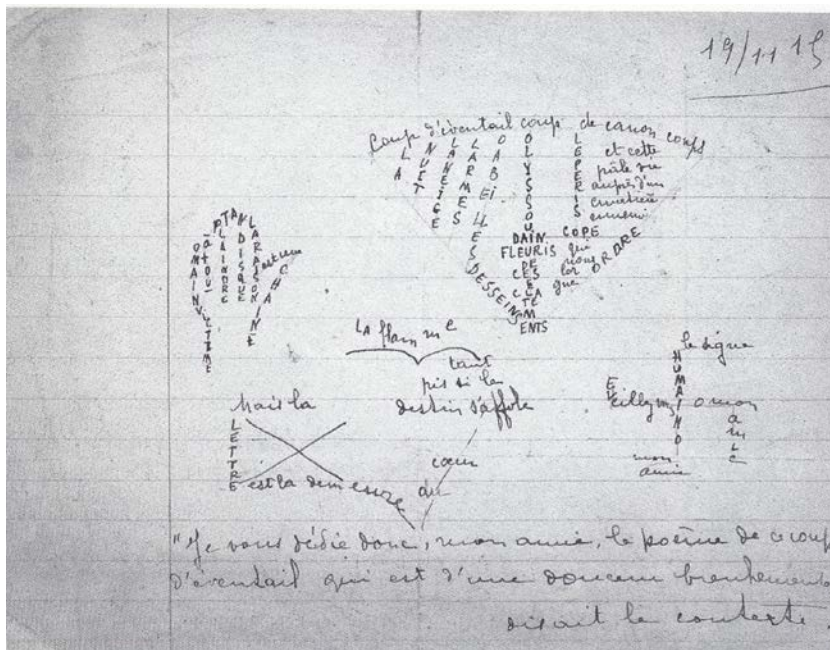 19/11 15
Coup d'éventail coup de canon coups
LA
NUIT
LA NEIGE
LARMES
D ABEILLES
DESSEINS
OLYSSOUDAIN
FLEURIS
DE
CES
ECLATEMENTS
LE PERISCOPE
et cette
pâle vue
auprès d'un
cimetière
ennemi
qui
nous
lorgne
ORDRE
O MAIN VICTIME
à tout
PLAINDRE
TANDIS QUE
LA RAISON INNÉ
est une
CHAINE
LA flamme
tant
pis si le
destin s'affole
Mais la
LETTRE
est la demeure du
cœur
le signe
HUMAIN
Eveillez
O mon
amie
O
mon
amie
"Je vous dédie donc, mon amie, le poème de ce coup
d'éventail qui est d'une douceur
disait le contexte.